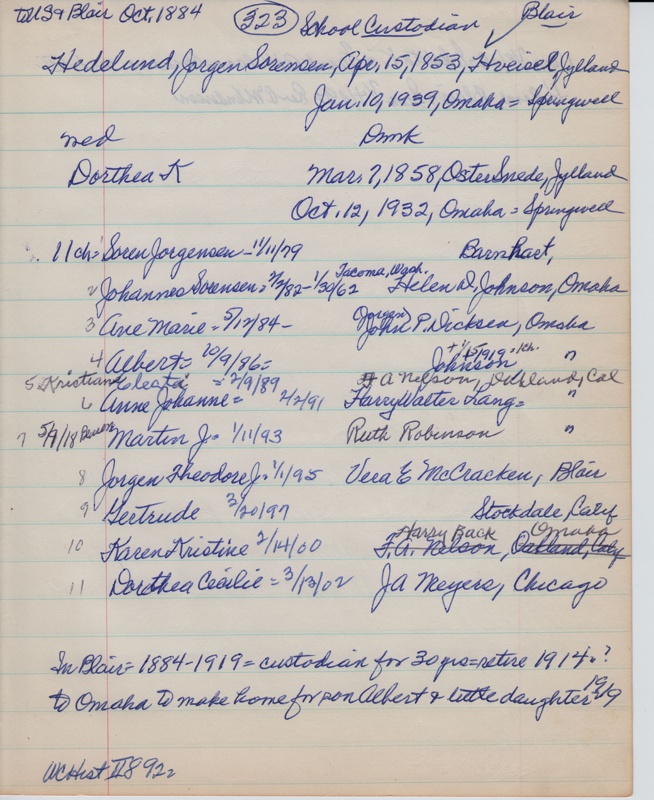 to USA Blair Oct, 1884 323 School Custodian Blair
Hedelund, Jorgen Sorensen, Apr. 15, 1853, Hveisel, Jylland
Jan. 10, 1939, Omaha = Springwell
med Dnmk
Dorthea K Mar. 7, 1858, Oster Snede, Jylland
Oct. 12, 1932, Omaha = Springwell
11 ch = Soren Jorgensen - 11/11/79 Barnhart,
Tacoma, Wash.
2 Johannes Sorensen = 2/2/82 - 1/30/62 Helen D. Johnson, Omaha
3 Ane Marie = 5/12/84 - Jorgen John P. Dicksen, Omaha
+ 1/15/1919 = 1 ch.
4 Albert = 10/9/86 = Johnson "
5 Kristiane Celesta = 2/9/89 A Nelson, Oakland, Cal
6 Anne Johanne = 2/2/91 Harry Walter Lang = "
7 5/9/18 Martin J = 1/11/93 Ruth Robinson "
8 Jorgen Theodore J. = 1/1/95 Vera E McCracken, Blair
9 Gertrude 3/20/97 Stockdale, Calif
Harry Back Omaha
10 Karen Kristine 2/14/00 F.A. Nelson, Oakland, Calif
11 Dorthea Cecilie = 3/13/02 J A Meyers, Chicago
In Blair = 1884-1919 = custodian for 30 yrs = retire 1914.?
to Omaha to make home for son Albert & little daughter 1919
WC Hist II 892 =